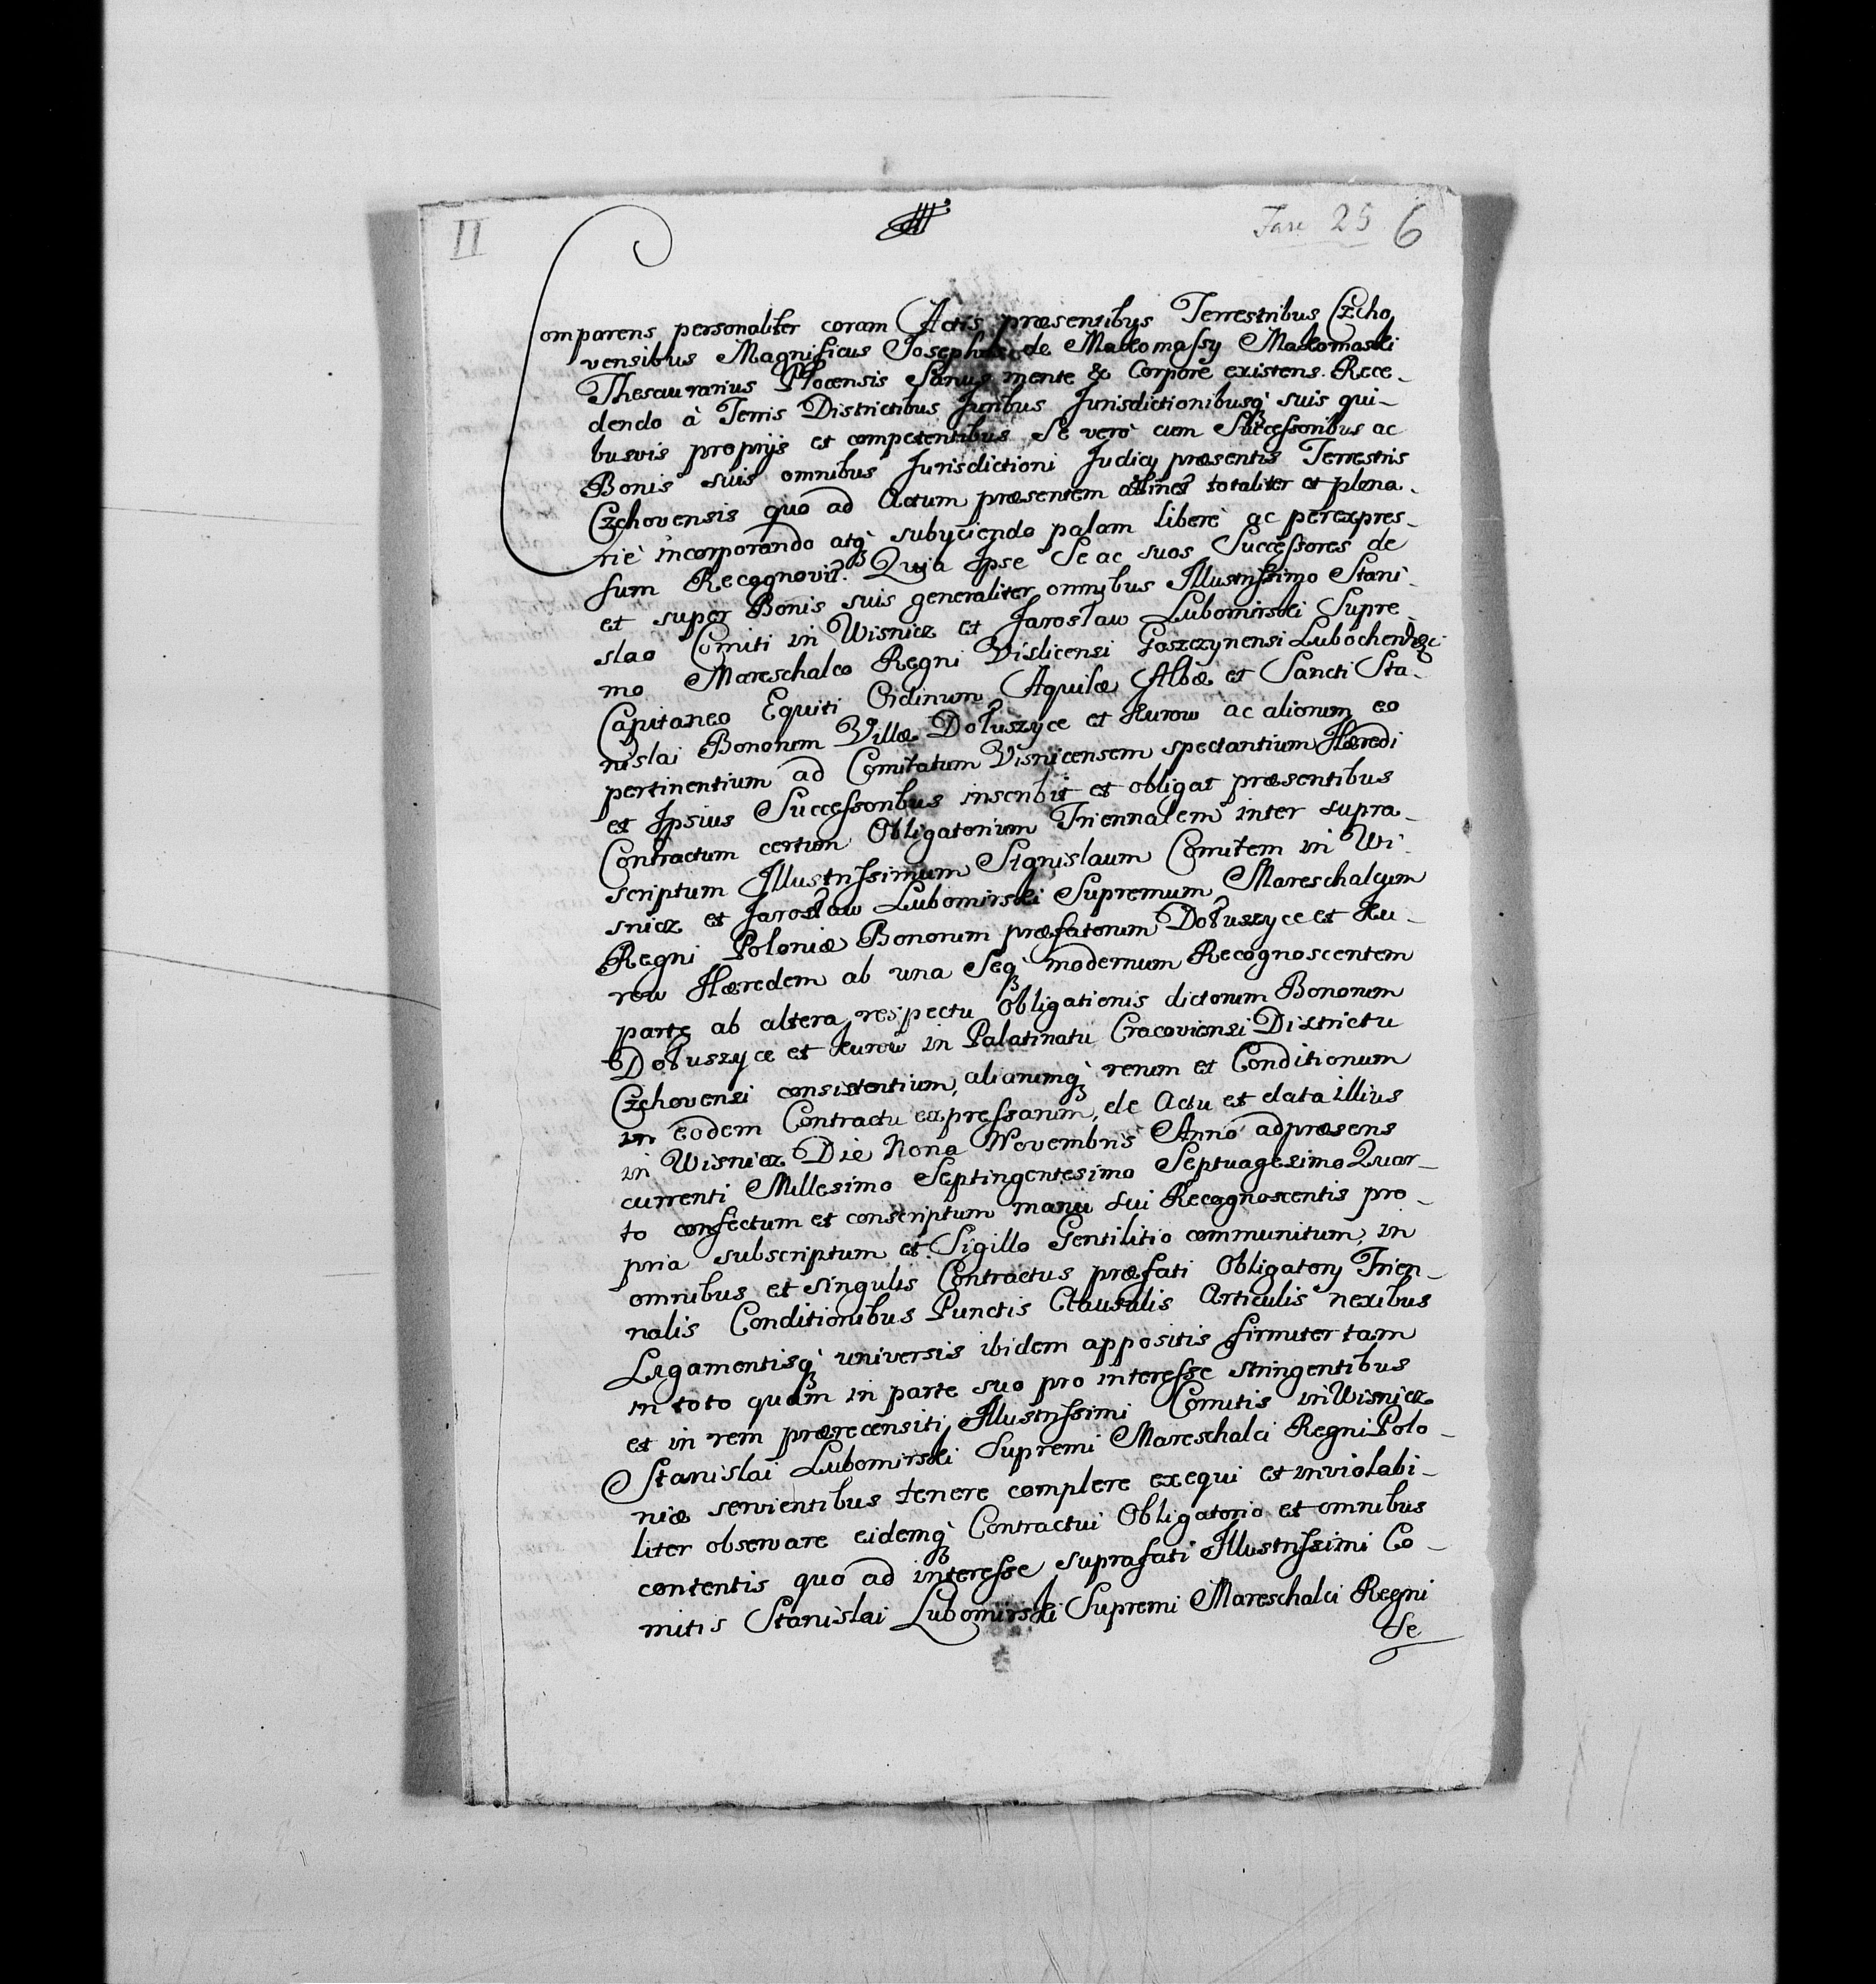 II
Fasc 25 6
Comparens personaliter coram Actis præsentibus Terrestribus Czcho
vensibus Magnificus Josephus de Makomassy Makomaski
Thesaurarius Plocensis Sanus mente & Corpore existens. Rece-
dendo à Terris Districtibus Juribus Jurisdictionibusq̀ suis qui-
busvis proprijs et competentibus Se verò cum Successoribus ac
Bonis suis omnibus Jurisdictioni Judicij præsentis Terrestris
Czchovensis quo ad Actum præsentem attinet totaliter et plena-
riè incorporando atq̀ subijciendo palam liberè ac per expres-
sum Recognovit. Quia Ipse Se ac suos Successores de
et super Bonis suis generaliter omnibus Illustrissimo Stani-
slao Comiti in Wisnicz et Jarosław Lubomirski Supre
mo Mareschalco Regni Vislicensi Goszczynensi
Capitaneo Equiti Ordinum Aquilæ Albæ et Sancti Sta-
nislai Bonorum Villæ Dołuszyce et Kurow ac aliorum eo
pertinentium ad Comitatum Visnicensem spectantium Hæredi
et Ipsius Successoribus inscribit et obligat præsentibus
Contractum certum Obligatorium Triennalem inter supra-
scriptum Illustrissimum Stanislaum Comitem in Wi-
snicz et Jarosław Lubomirski Supremum Mareschalcum
Regni Poloniæ Bonorum præfatorum Dołuszyce et Ku-
row Hæredem ab una Seq̀ modernum Recognoscentem
parte ab altera respectu Obligationis dictorum Bonorum
Dołuszyce et Kurow in Palatinatu Cracoviensi Districtu
Czchovensi consistentium, aliarumq̀ rerum et Conditionum
in eodem Contractu expressarum, de Actu et data illius
in Wisnicz Die Nona Novembris Anno ad præsens
currenti Millesimo Septingentesimo Septuagesimo Quar-
to confectum et conscriptum manu sui Recognoscentis pro-
pria subscriptum et Sigillo Gentilitio communitum, in
omnibus et singulis Contractus præfati Obligatorij Trien-
nalis Conditionibus Punctis Clausulis Articulis nexibus
Ligamentisq̀ universis ibidem appositis firmiter tam
in toto quam in parte suo pro interesse stringentibus
et in rem prærecensiti Illustrissimi Comitis in Wisnicz
Stanislai Lubomirski Supremi Mareschalci Regni Polo-
niæ servientibus tenere complere exequi et inviolabi-
liter observare eidemq̀ Contractui Obligatorio et omnibus
contentis quo ad interesse suprafati Illustrissimi Co-
mitis Stanislai Lubomirski Supremi Mareschalci Regni
Se